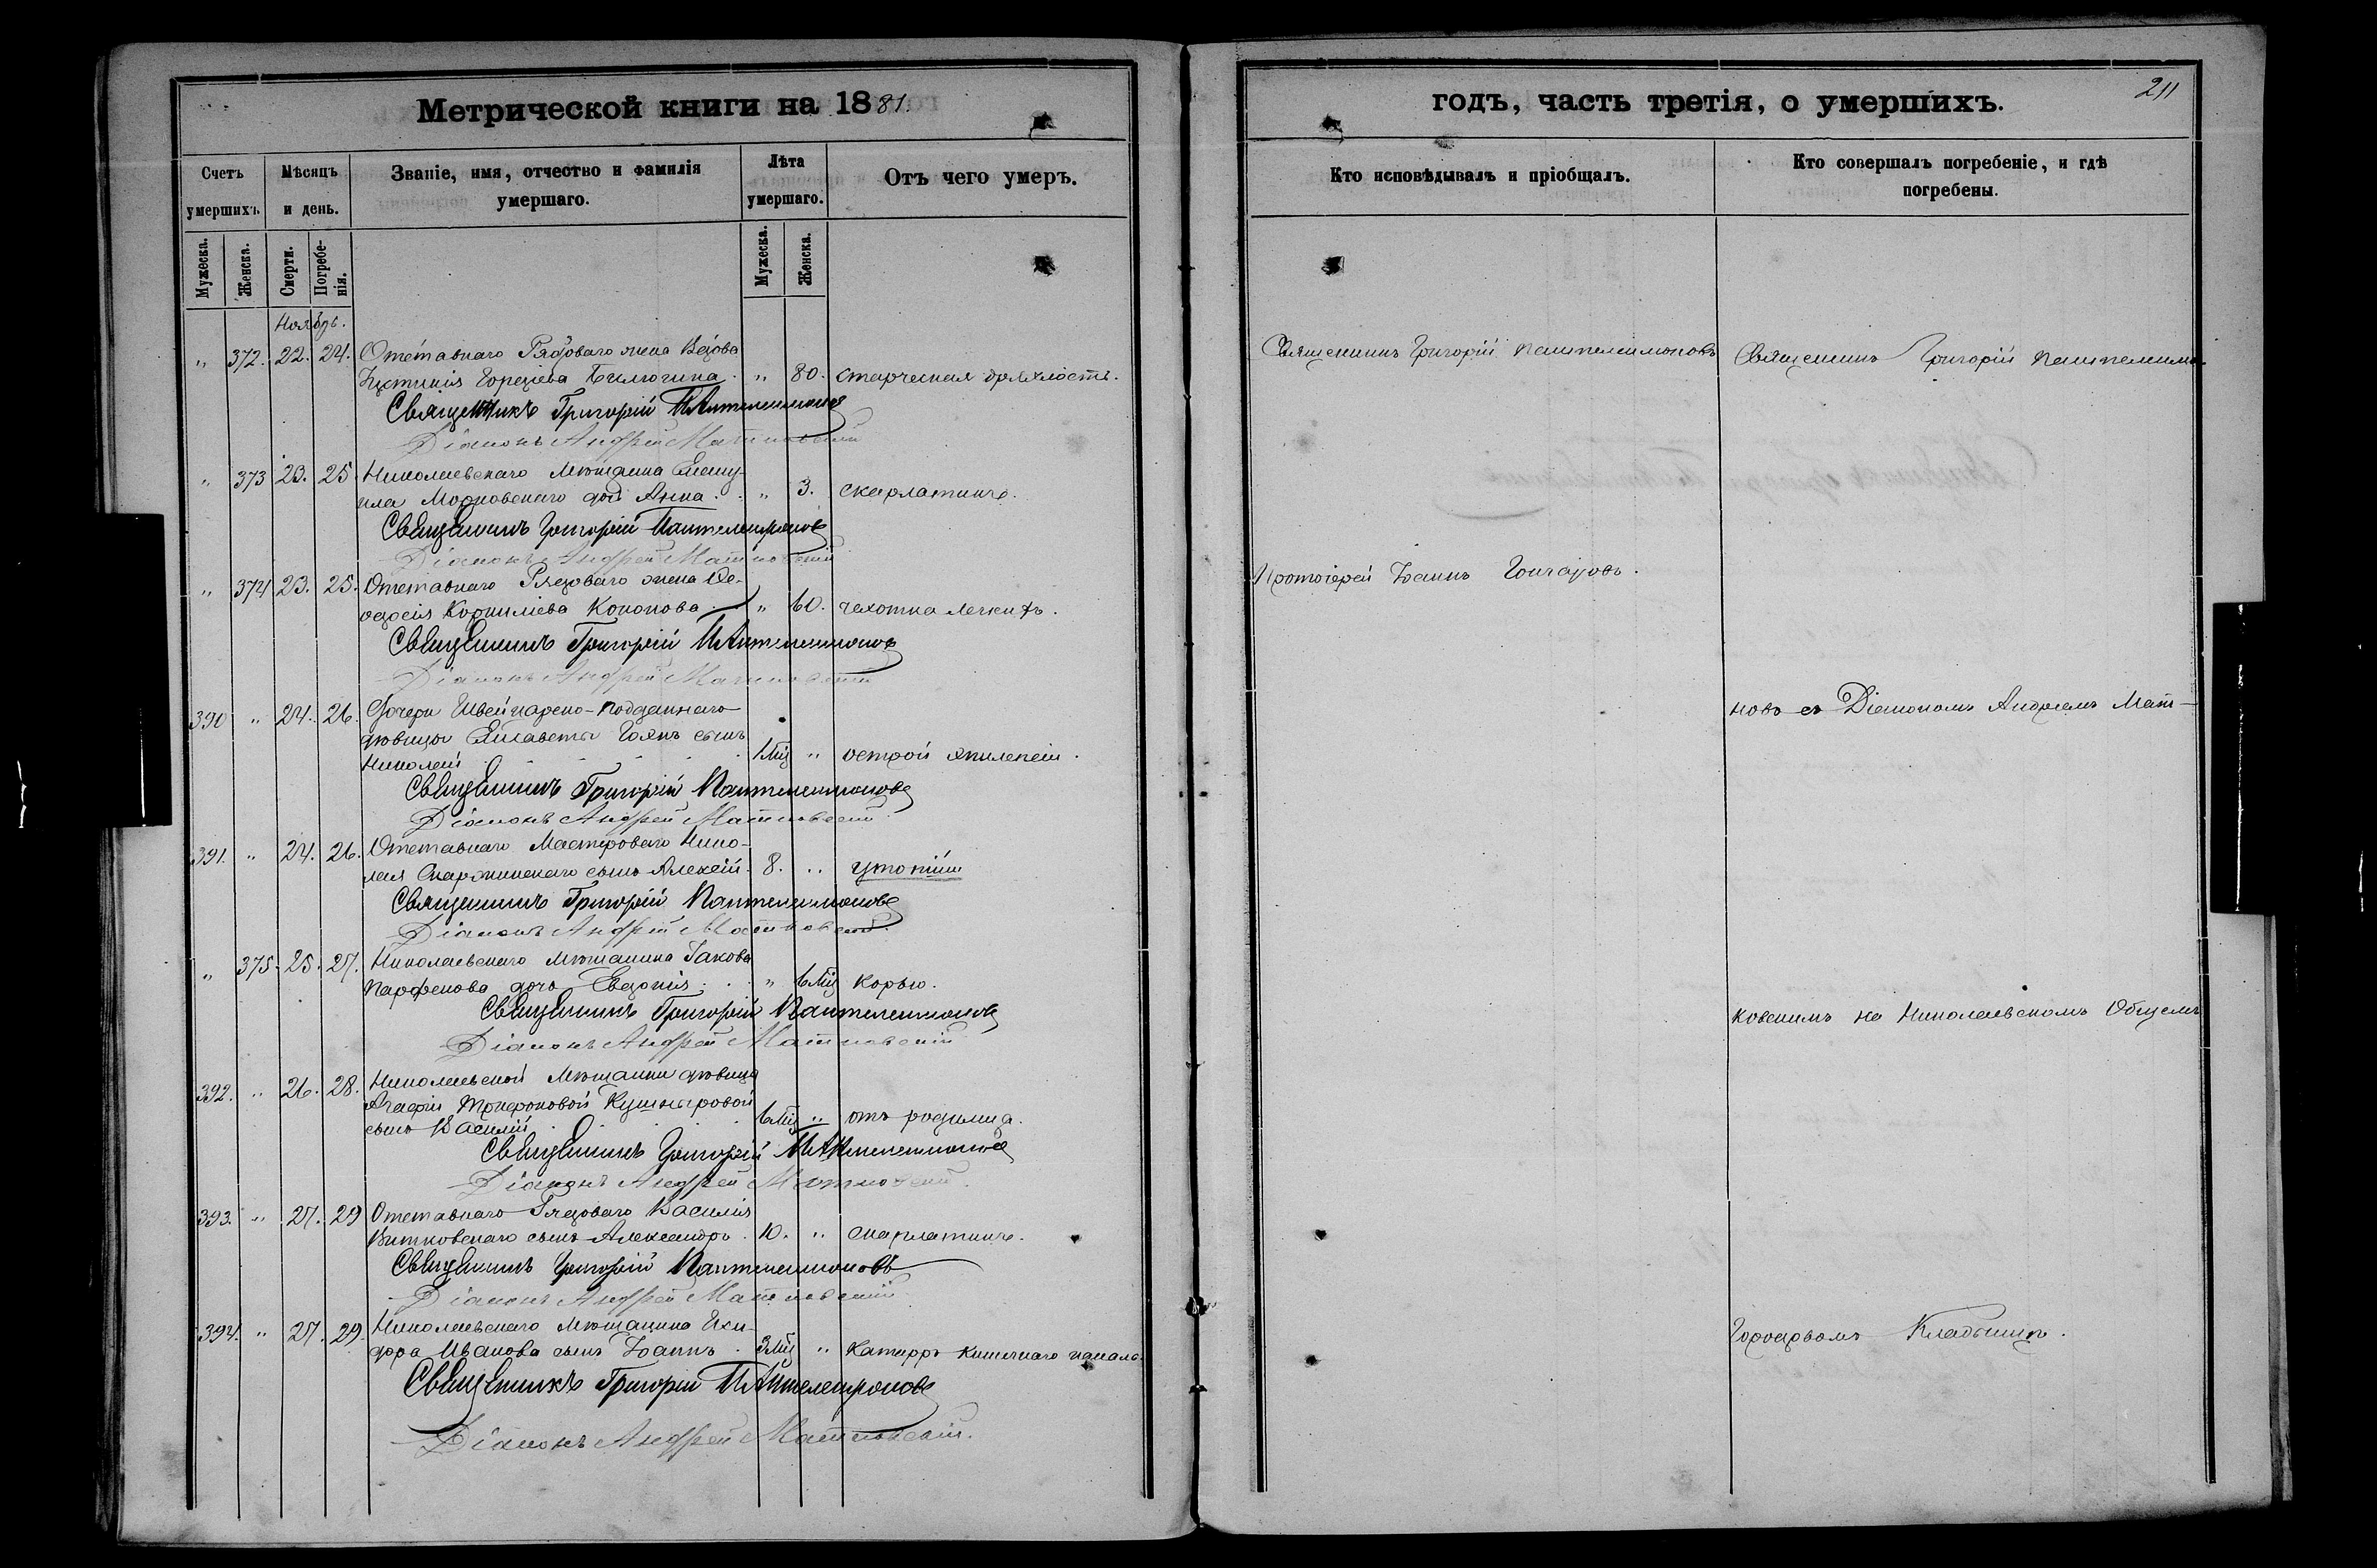 Метрической книги на 1881.
Счетъ умершихъ.
Мѣсяцъ и день.
Званіе, имя, отчество и фамилія умершаго.
Лѣта умершаго.
Отъ чего умеръ.
Мужеска.
Женска.
Смерти.
Погребенія.
Мужеска.
Женска.
Ноябрь.
" 372. 22. 24. Отставнаго Рядоваго жена Вдова
Іустинія Гордіева Билюгина . " 80. старческая дряхлость.
Священникъ Григорій Пантелеимоновъ
Діаконъ Андрей Матковскій
" 373 23. 25. Николаевскаго Мѣщанина
Марковскаго дочь Анна . . " 3. скарлатины.
Священникъ Григорій Пантелеимоновъ
Діаконъ Андрей Матковскій
" 374 23. 25. Отставнаго Рядоваго жена Ѳе-
одосія Корнилiева Кононова " 60. чахотка легкихъ.
Священникъ Григорій Пантелеимоновъ
Діаконъ Андрей Матковскій
390 " 24. 26. Дочери Швейцарско-подданнаго
дѣвицы Елисаветы сынъ
Николай . . . . . 1 Мц " острой эпилепсіи.
Священникъ Григорій Пантелеимоновъ
Діаконъ Андрей Матковскій
391. " 24. 26. Отставнаго Мастероваго Нико-
лая сынъ Алексій. 8. ..
Священникъ Григорій Пантелеимоновъ
Діаконъ Андрей Матковскій
" 375. 25. 27. Николаевскаго Мѣщанина Іакова
Парфенова дочь Евдокія . . . " 6 Мц корью.
Священникъ Григорій Пантелеимоновъ
Діаконъ Андрей Матковскій
392. " 26. 28. Николаевской Мѣщанки дѣвицы
Агафіи Трифоновой Кушнировой
сынъ Василій . . . . 6 Мц " отъ родимца.
Священникъ Григорій Пантелеимоновъ
Діаконъ Андрей Матковскій
393. " 27. 29 Отставнаго Рядоваго Василія
Витковскаго сынъ Александръ . 10. " скарлатины.
Священникъ Григорій Пантелеимоновъ
Діаконъ Андрей Матковскій
394. " 27. 29. Николаевскаго Мѣщанина Иси-
дора Иванова сынъ Іоаннъ . 3 Мц " Катарръ кишечнаго канала.
Священникъ Григорій Пантелеимоновъ
Діаконъ Андрей Матковскій.
годъ, часть третія, о умершихъ.
211
Кто исповѣдывалъ и пріобщалъ.
Кто совершалъ погребеніе, и гдѣ погребены.
Священникъ Григорій Пантелеимоновъ
Священникъ Григорій Пантелеимо-
Протоіерей Іоаннъ Гончаровъ.
новъ съ Діакономъ Андреемъ Мат-
ковскимъ на Николаевскомъ Общемъ
Городскомъ Кладбищѣ.